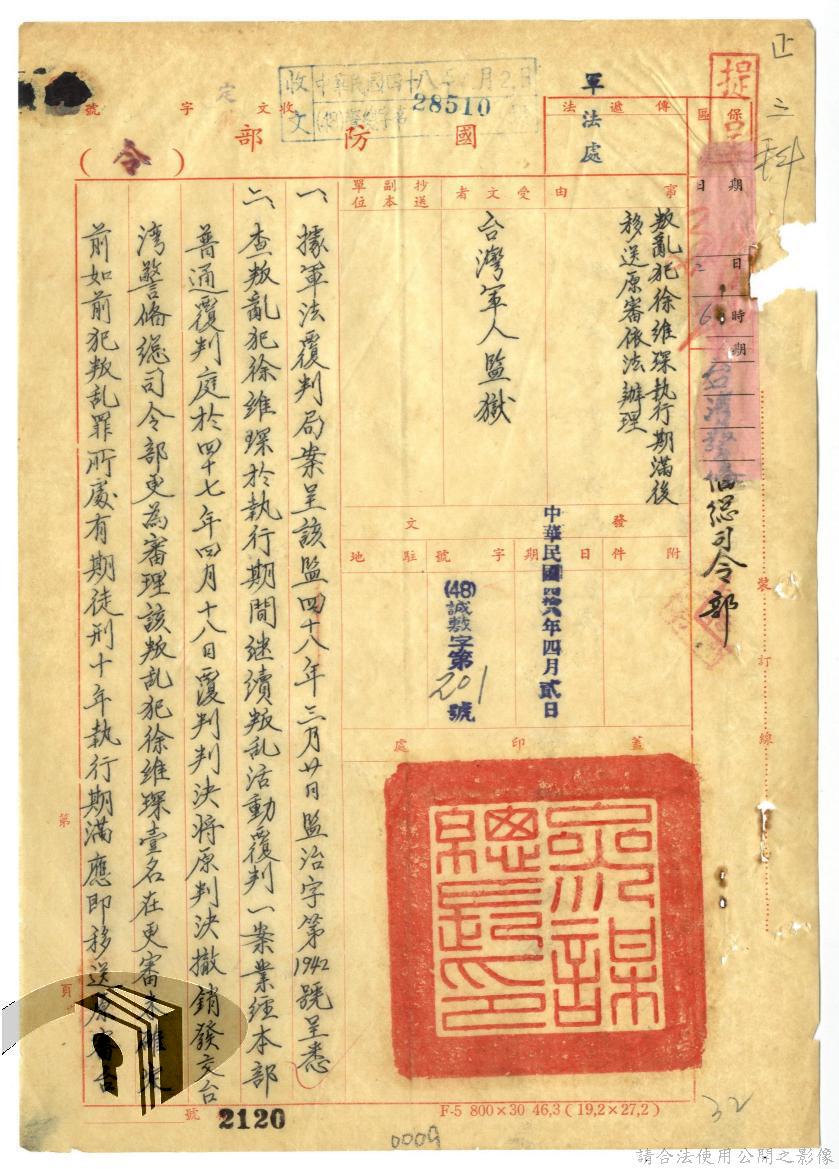 正
三
科
提
保
區
期
日
時
期
台灣警備總司令部
裝
訂
線
軍法處
傳遞法
收文
中華民國四十八年 月2日
28510
收文字號
國防部
(令)
事由
叛亂犯徐維琛執行期滿後
移送原審依法辦理
受文者
台灣軍人監獄
抄送副本單位
發文
附件
日期
中華民國四拾八年四月貳日
字號
(48)誠敷字第201號
駐地
蓋印處
參謀總長印
一、據軍法覆判局案呈該監四十八年三月廿日監治字第1942號呈悉
二、查叛亂犯徐維琛於執行期間继續叛乱活動覆判一案業經本部
普通覆判庭於四十七年四月十八日覆判判決將原判決撤銷發交台
湾警備總司令部更為審理該叛乱犯徐維琛壹名在更審未確定
前如前犯叛乱罪所處有期徒刑十年執行期滿應即移送原審台
第
頁
號
2120
F-5 800×30 46,3(19,2×27,2)
0009
32
請合法使用公開之影像